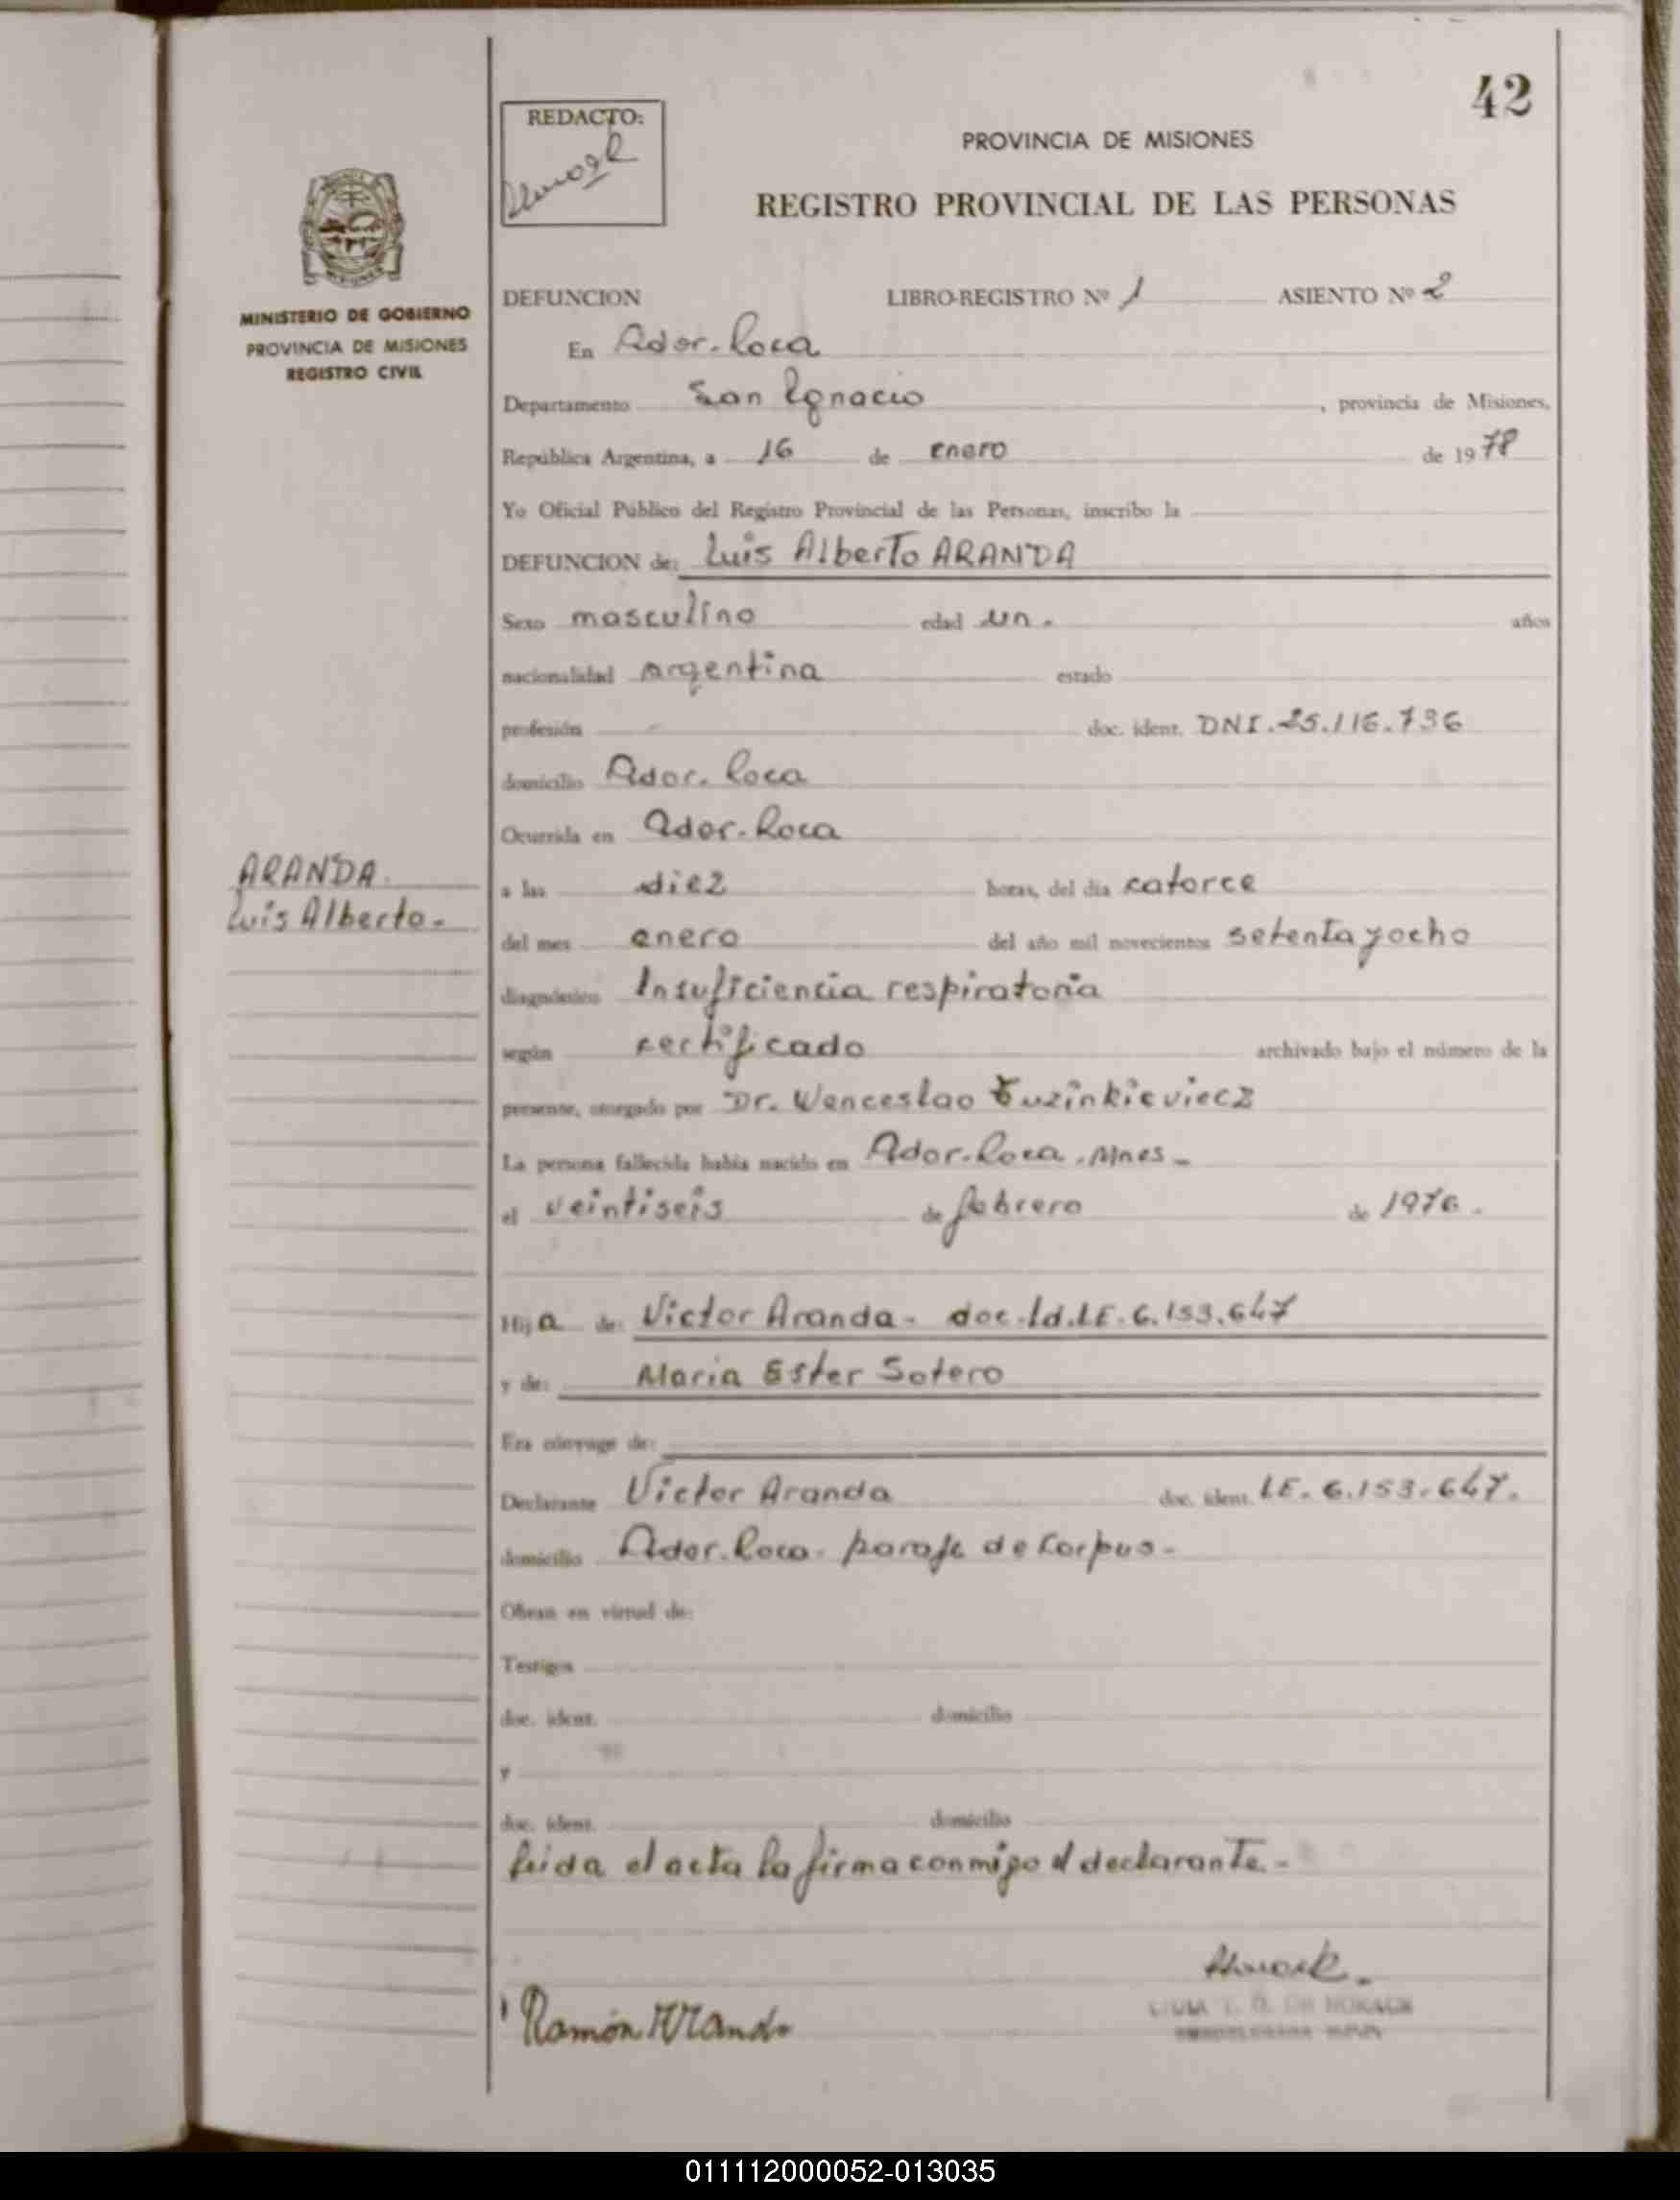 42
REDACTO:
PROVINCIA DE MISIONES
REGISTRO PROVINCIAL DE LAS PERSONAS
MINISTERIO DE GOBIERNO
PROVINCIA DE MISIONES
REGISTRO CIVIL
DEFUNCION LIBRO-REGISTRO Nº 1 ASIENTO Nº 2
En Ador. Roca
Departamento San Ignacio, provincia de Misiones,
República Argentina, a 16 de enero de 1978
Yo Oficial Público del Registro Provincial de las Personas, inscribo la
DEFUNCION de: Luis Alberto ARANDA
Sexo masculino edad un. años
nacionalidad argentina estado
profesión - doc. ident. DNI. 25.116.736
domicilio Ador. Roca
Ocurrida en Ador. Roca
ARANDA.
Luis Alberto-
a las diez horas, del día catorce
del mes enero del año mil novecientos setenta y ocho
diagnóstico Insuficiencia respiratoria
según certificado archivado bajo el número de la
presente, otorgado por Dr. Wenceslao
La persona fallecida había nacido en Ador. Roca. Mnes-
el veintiseis de febrero de 1976.
Hija de: Victor Aranda- doc. Id. LE. 6.153.647
y de: Maria Ester Sotero
Era cónyuge de:
Declarante Victor Aranda doc. ident. LE. 6.153.647.
domicilio Ador. Roca. paraje de Corpus-
Obran en virtud de:
Testigos
doc. ident. domicilio
y
doc. ident. domicilio
Leida el acta la firma conmigo el declarante.-
Ramón Aranda
011112000052-013035